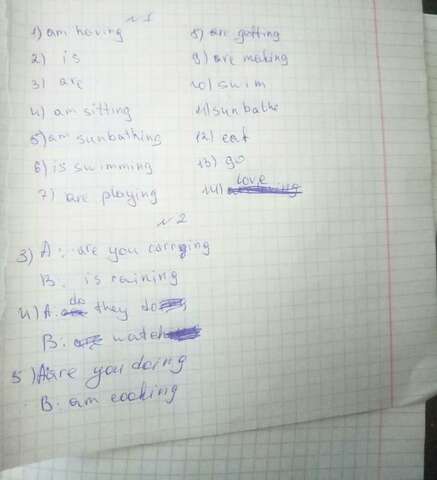 №1
1) am having
2) is
3) are
4) am sitting
5) am sunbathing
6) is swimming
7) are playing
8) are getting
9) are making
10) swim
11) sunbathe
12) eat
13) go
14) love
№2
3) A: are you carrying
B: is raining
4) A. do they do
B. watch
5) A: are you doing
B: am cooking